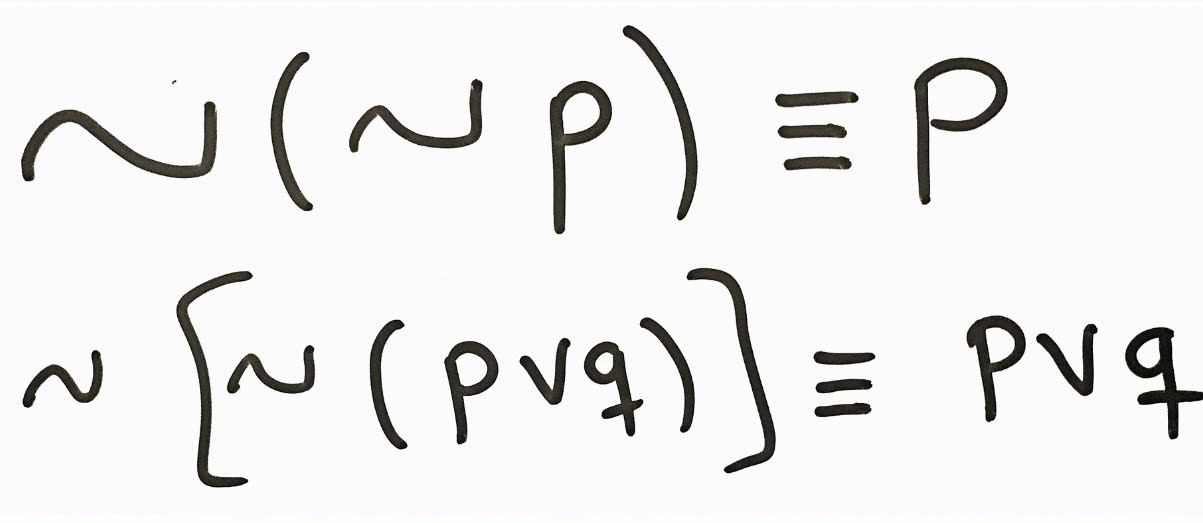 ~(~p) ≡ p
~[~(p∨q)] ≡ p∨q